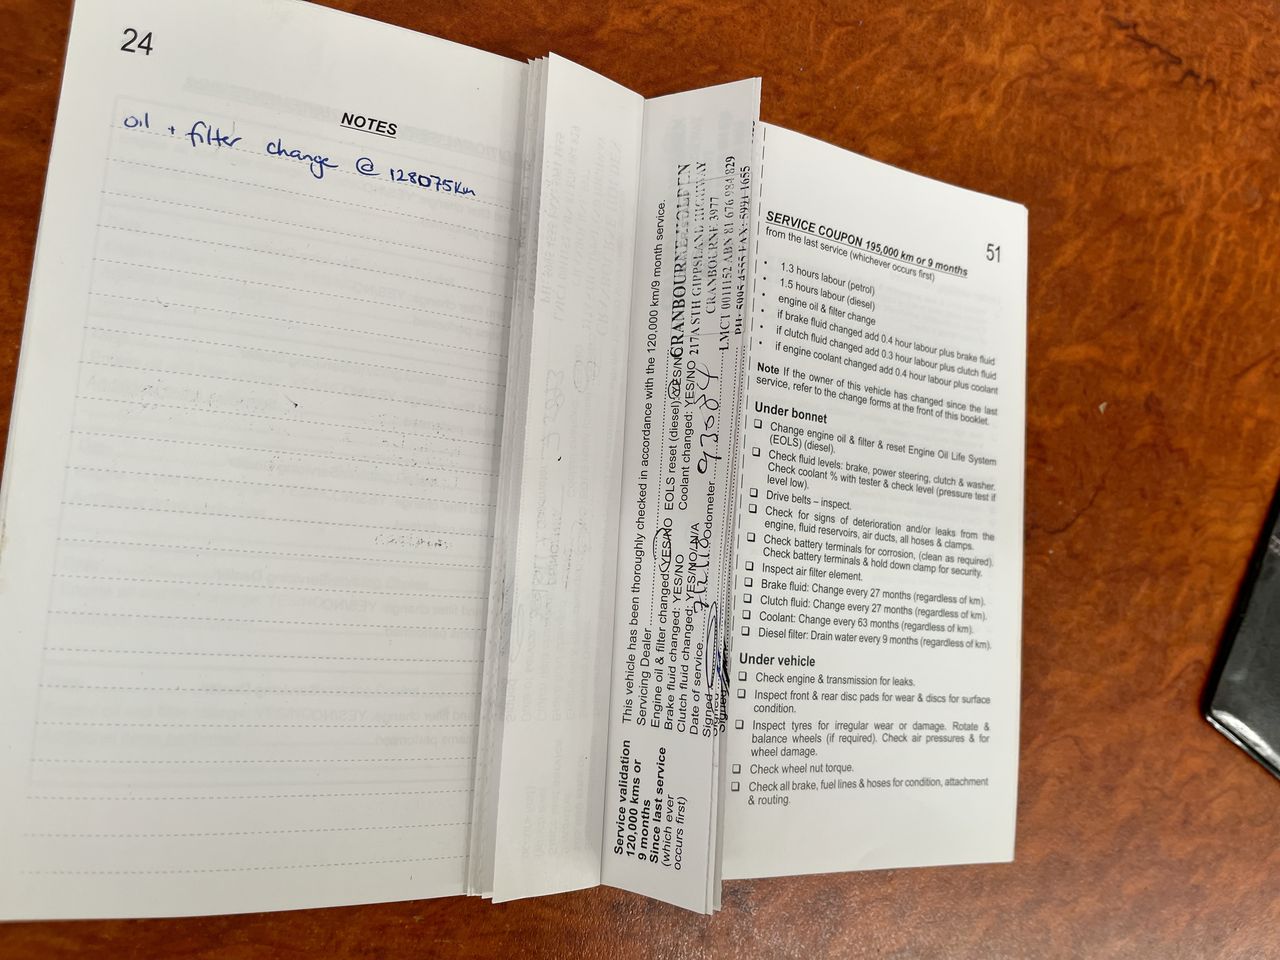 24
NOTES
oil + filter change @ 128075km
Service validation
120,000 kms or
9 months
Since last service
(which ever
occurs first)
This vehicle has been thoroughly checked in accordance with the 120,000 km/9 month service.
Servicing Dealer
Engine oil & filter changed: YES/NO EOLS reset (diesel): YES/NO
Brake fluid changed: YES/NO Coolant changed: YES/NO
Clutch fluid changed: YES/NO/N/A
Date of service Odometer
Signed
Signed
CRANBOURNE HOLDEN
217A STH GIPPSLAND HIGHWAY
CRANBOURNE 3977
LMCT 0011152 ABN 81 676 984 829
PH: 5995 4555 FAX: 5991 1655
51
SERVICE COUPON 195,000 km or 9 months
from the last service (whichever occurs first)
• 1.3 hours labour (petrol)
• 1.5 hours labour (diesel)
• engine oil & filter change
• if brake fluid changed add 0.4 hour labour plus brake fluid
• if clutch fluid changed add 0.3 hour labour plus clutch fluid
• if engine coolant changed add 0.4 hour labour plus coolant
Note If the owner of this vehicle has changed since the last
service, refer to the change forms at the front of this booklet.
Under bonnet
❑ Change engine oil & filter & reset Engine Oil Life System
(EOLS) (diesel).
❑ Check fluid levels: brake, power steering, clutch & washer.
Check coolant % with tester & check level (pressure test if
level low).
❑ Drive belts – inspect.
❑ Check for signs of deterioration and/or leaks from the
engine, fluid reservoirs, air ducts, all hoses & clamps.
❑ Check battery terminals for corrosion, (clean as required).
Check battery terminals & hold down clamp for security.
❑ Inspect air filter element.
❑ Brake fluid: Change every 27 months (regardless of km).
❑ Clutch fluid: Change every 27 months (regardless of km).
❑ Coolant: Change every 63 months (regardless of km).
❑ Diesel filter: Drain water every 9 months (regardless of km).
Under vehicle
❑ Check engine & transmission for leaks.
❑ Inspect front & rear disc pads for wear & discs for surface
condition.
❑ Inspect tyres for irregular wear or damage. Rotate &
balance wheels (if required). Check air pressures & for
wheel damage.
❑ Check wheel nut torque.
❑ Check all brake, fuel lines & hoses for condition, attachment
& routing.